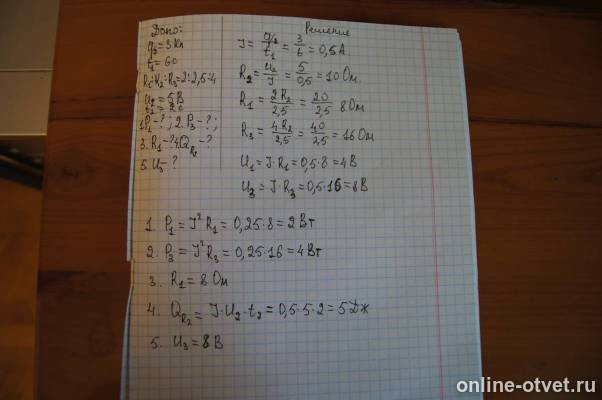 Дано:
q₃ = 3 Кл
t₁ = 6с
R₁:R₂:R₃ = 2:2,5:4
U₂ = 5 В
t₂ = 2с
1. P₁ - ?; 2. P₃ - ?;
3. R₁ - ? 4. Q_R₂ - ?
5. U₃ - ?
Решение
J = q₃/t₁ = 3/6 = 0,5 А.
R₂ = U₂/J = 5/0,5 = 10 Ом.
R₁ = 2R₂/2,5 = 20/2,5 8 Ом
R₃ = 4R₂/2,5 = 40/2,5 = 16 Ом
U₁ = J·R₁ = 0,5·8 = 4 В
U₃ = J·R₃ = 0,5·16 = 8 В
1. P₁ = J²R₁ = 0,25·8 = 2 Вт
2. P₃ = J²R₃ = 0,25·16 = 4 Вт
3. R₁ = 8 Ом
4. Q_R₂ = J·U₂·t₂ = 0,5·5·2 = 5 Дж
5. U₃ = 8 В
online-otvet.ru